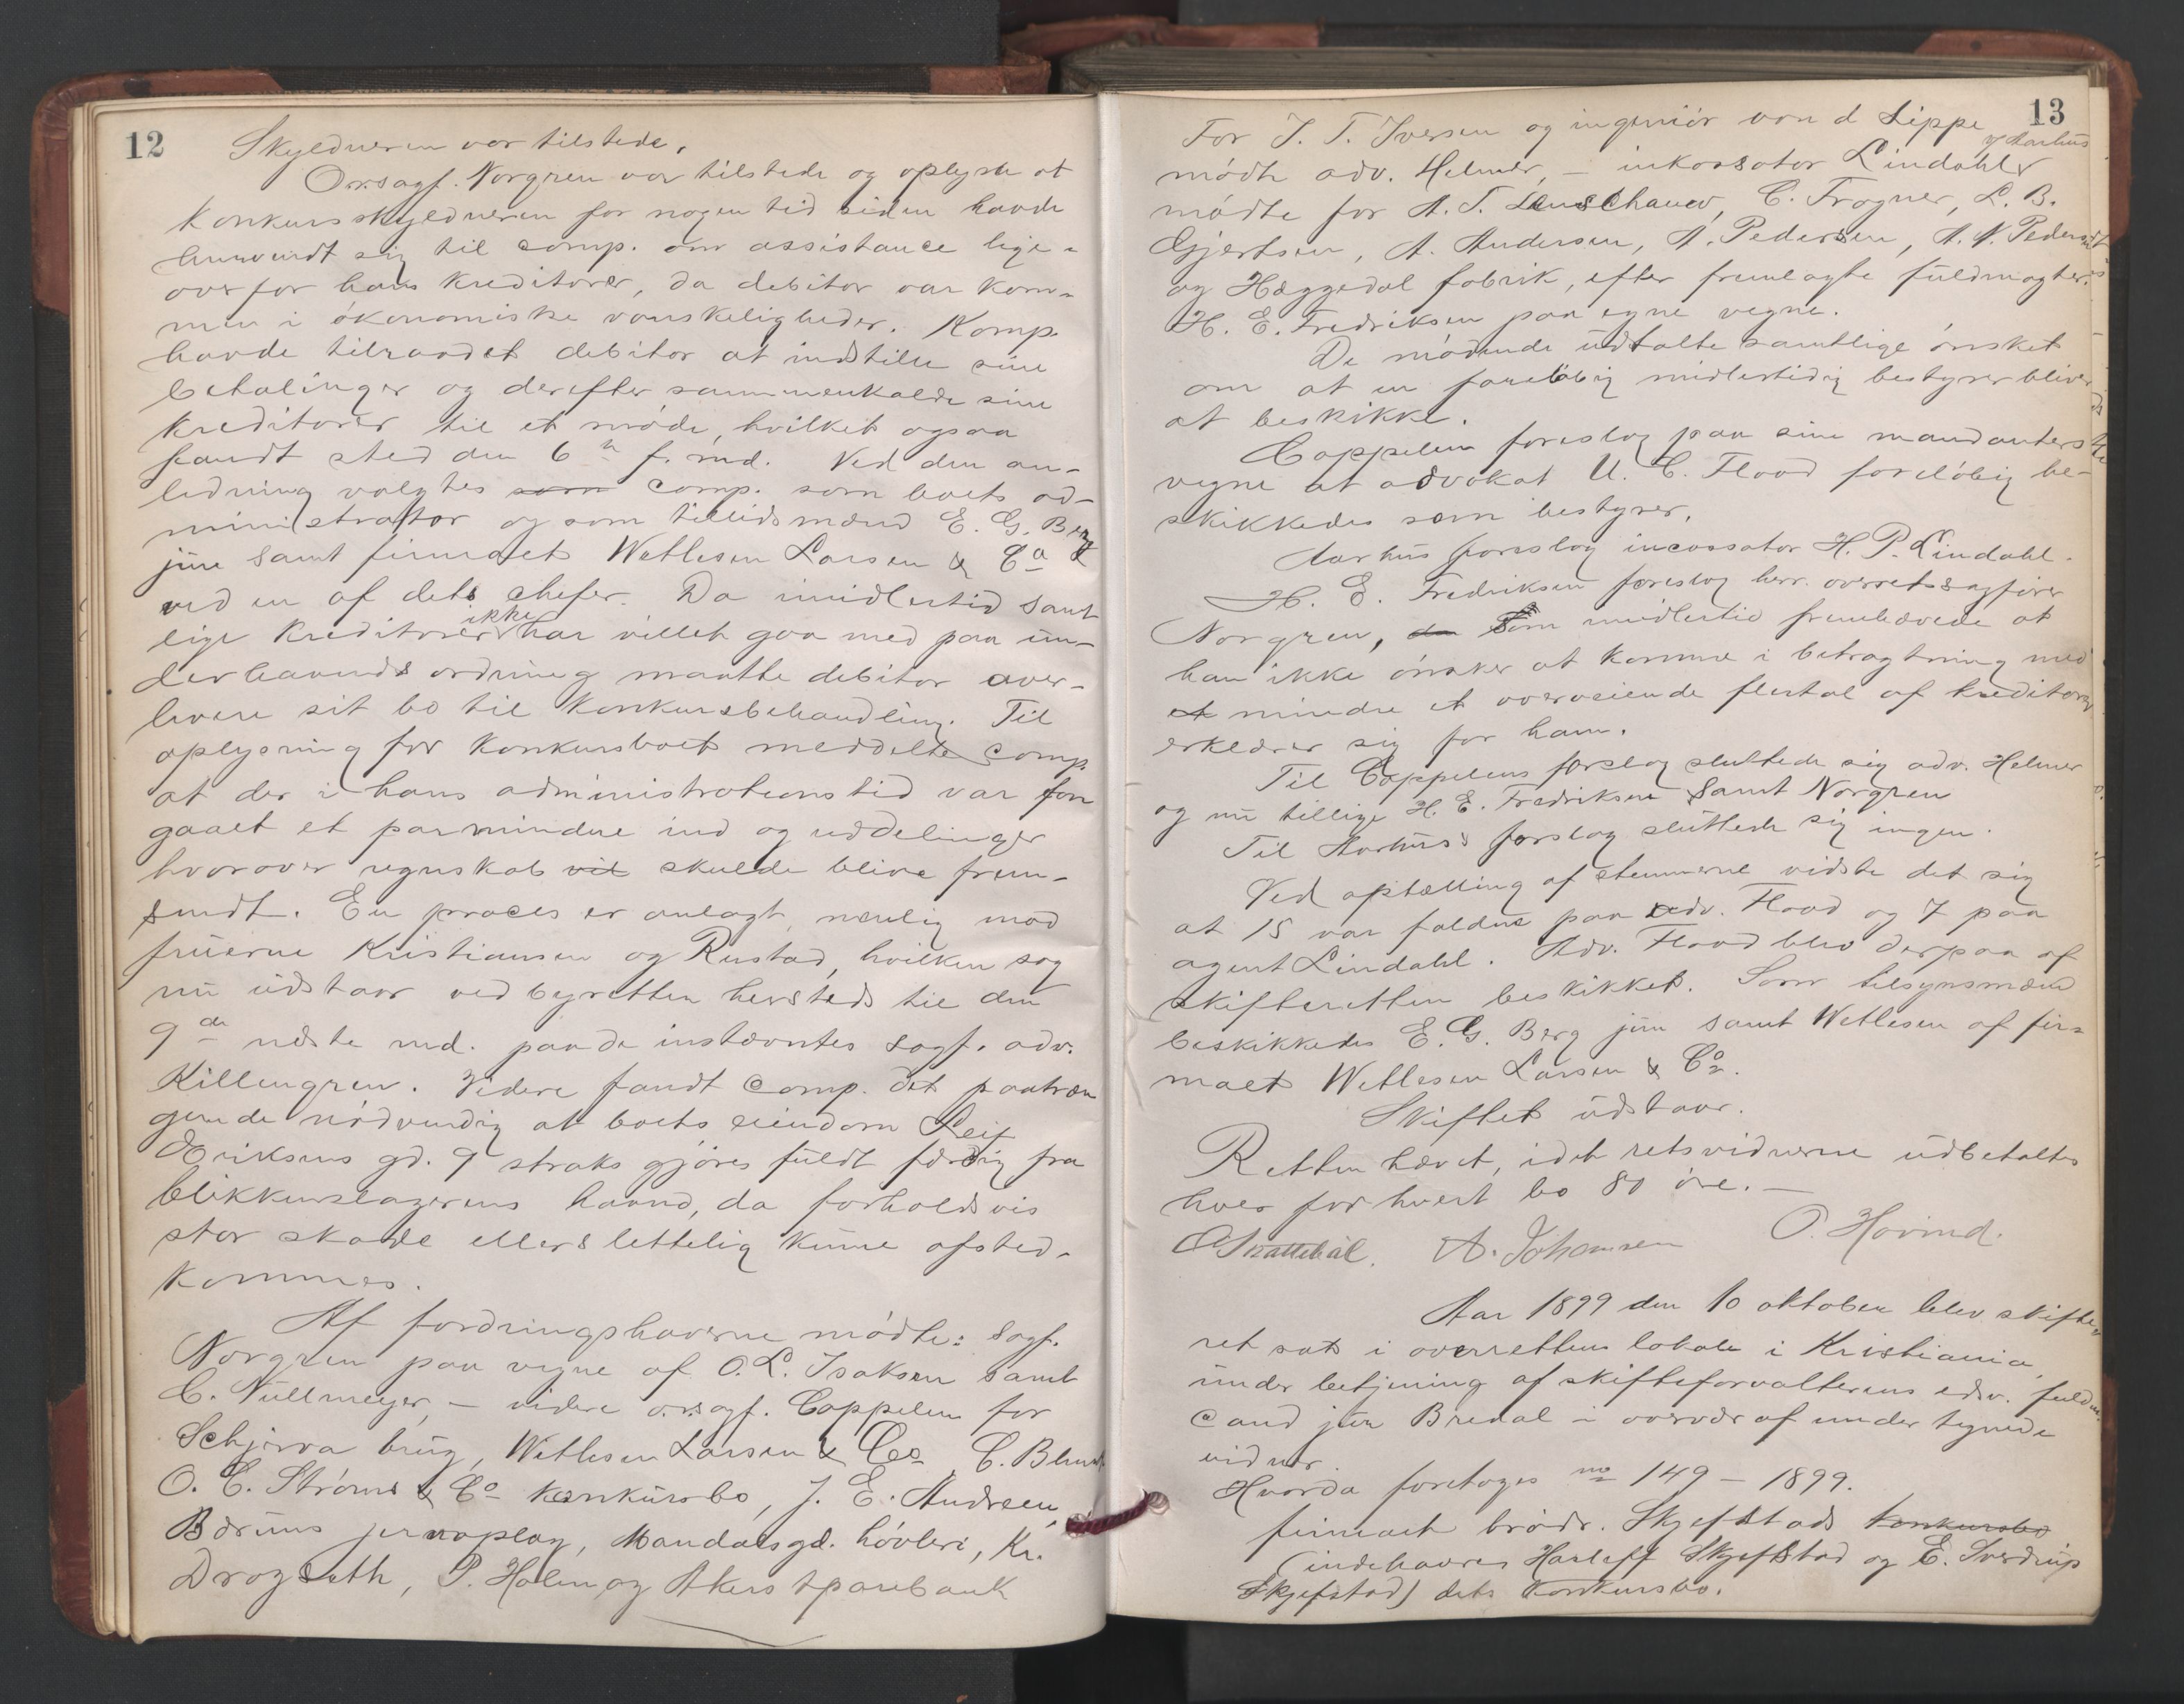 12
Skyldneren var tilstede.
Orsagf. Norgren var tilstede og oplyste at
konkursskyldneren for nogen tid siden havde
henvendt sig til comp. om assistance lige-
overfor hans kreditorer, da debitor var kom-
men i økonomiske vanskeligheder. Komp.
havde tilraadet debitor at indstille sine
betalinger og derefter sammenkalde sine
kreditorer til et møde, hvilket ogsaa
fandt sted den 6te f. md. Ved den an-
ledning valgtes som comp. som boets ad-
ministrator og som tillidsmænd E. G. Berg
jun samt firmaet Wetlesen Larsen & Co
ved en af dets chefer. Da imidlertid samt
lige kreditorer ikke har villet gaa med paa un-
derhaands ordning maatte debitor over-
levere sit bo til konkursbehandling. Til
oplysning for konkursboet meddelte comp.
at der i hans administrationstid var fore
gaaet et par mindre ind og uddelinger
hvorover regnskab vil skulde blive frem-
sendt. En proces er anlagt, nemlig mod
fruerne Kristiansen og Rustad, hvilken sag
nu udstaar ved byretten hersteds til den
9de næste md. paa de instævntes sagf. adv.
Killengren. Videre fandt comp. det paatræn
gende nødvendig at boets eiendom Leif
Eriksens gd. 9 straks gjøres fuldt færdig fra
blikkenslagerens haand, da forholdsvis
stor skade ellers lettelig kunne afsted-
kommes.
Af fordringshaverne mødte: Sagf.
Norgren paa vegne af O. L. Isaksen samt
C. Nüllmeyer, – videre o.r.sagf. Cappelen for
Schjerva brug, Wetlesen Larsen & Co, C. Blunck
O. C. Strøms & Co konkursbo, J. E. Andreen,
Bærums jernoplag, Mandalsgd. høvleri, Kr.
Drogseth, P. Holm og Akers sparebank
13
For J. T. Iversen og ingeniør von d Lippe
v/ Aarhus
mødte adv. Helmer, – inkassator Lindahl
mødte for A. T. Lenschauw, C. Frogner, L. B.
Gjertsen, A. Andersen, A. Pedersen, A. N. Pedersen
og Hæggedal fabrik, efter fremlagte fuldmagter.
H. E. Fredriksen paa egne vegne.
De mødende udtalte samtlige ønsket
om at en foreløbig midlertidig bestyrer bliver
at beskikke.
Cappelen foreslog paa sine mandanters
vegne at advokat U. C. Flood foreløbig be-
skikkedes som bestyrer.
Aarhus foreslog incassator H. P. Lindahl.
H. E. Fredriksen foreslog herr. overretssagfører
Norgren, da som imidlertid fremhævede at
han ikke ønsker at komme i betragtning med
et mindre et overveiende flertal af kreditorer
erklærer sig for ham.
Til Cappelens forslag sluttede sig adv. Helmer
og nu tillige H. E. Fredriksen samt Norgren
Til Aarhus's forslag sluttede sig ingen.
Ved optælling af stemmerne vidste det sig
at 15 var faldne paa adv. Flood og 7 paa
agent Lindahl. Adv. Flood blev derpaa af
skifteretten beskikket. Som tilsynsmænd
beskikkedes E. G. Berg jun samt Wetlesen af fir-
maet Wetlesen Larsen & Co.
Skiftet udstaar.
Retten hævet, idet retsvidnerne udbetaltes
hver for hvert bo 80 øre. –
O Skattebøl. A. Johansen O. Hovind.
Aar 1899 den 10 oktober blev skifte-
ret sat i overrettens lokale i Kristiania
under betjening af skifteforvalterens edsv. fuldm.
cand jur Bredal – i overvær af undertegnede
vidner.
Hvorda foretoges no 149 – 1899.
firmaet brødr. Skjefstads konkursbo
(indehavere Harleff Skjefstad og E. Sverdrup
Skjefstad) dets konkursbo.